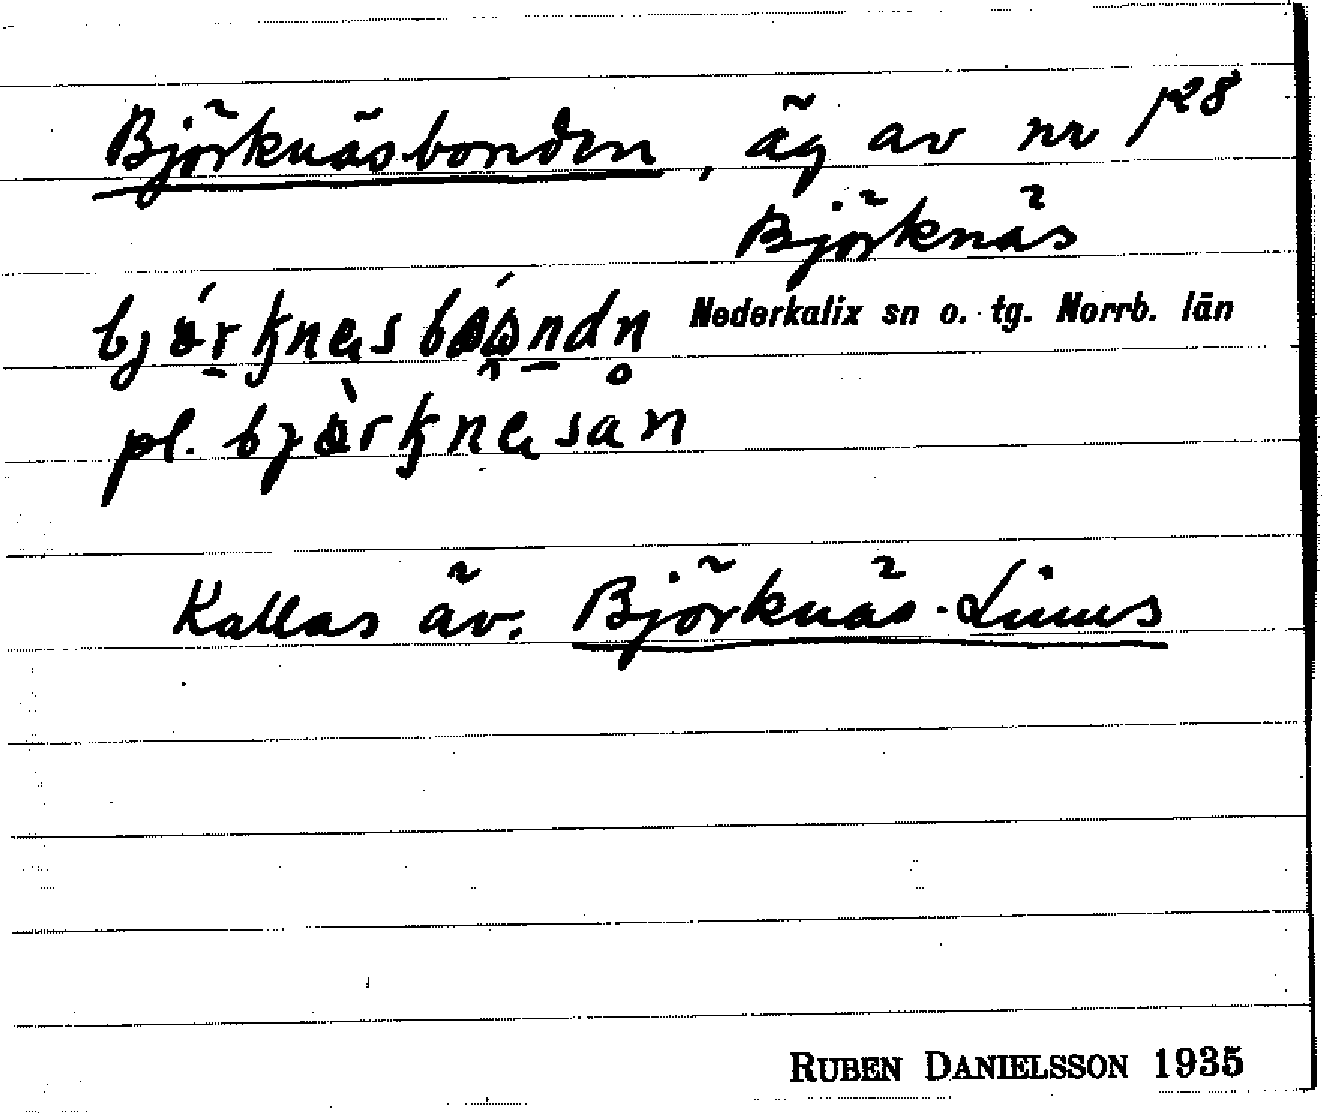 Björknäsbonden, äg av nr 1²⁸
Björknäs
Nederkalix sn o. tg. Norrb. län
pl.
Kallas äv. Björknäs-Linus
RUBEN DANIELSSON 1935